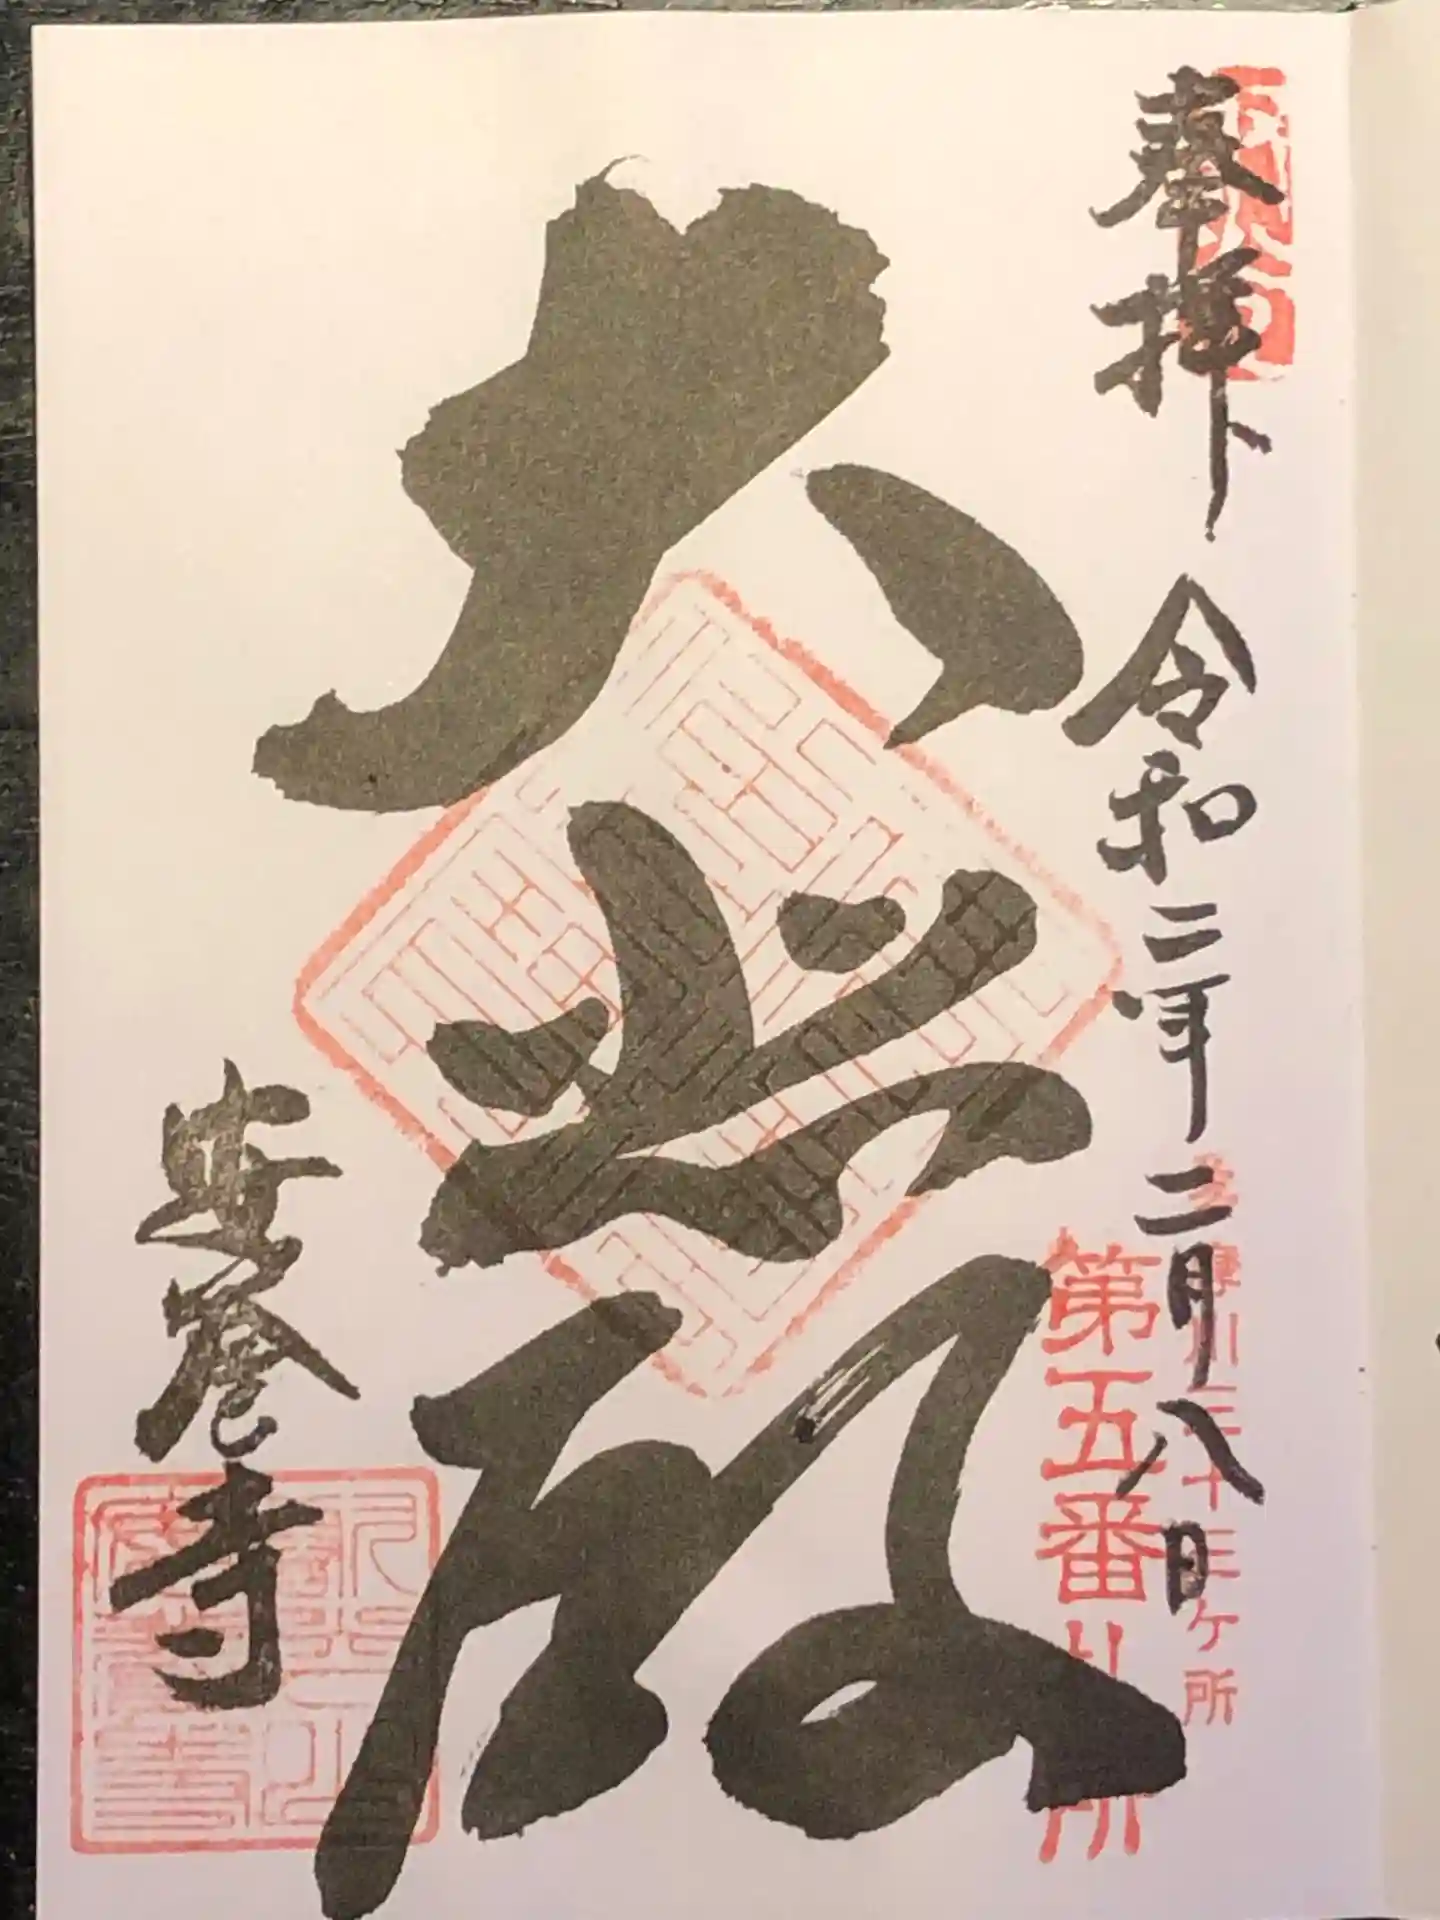 奉拝 令和二年二月八日
多摩川三十三ヶ所
第五番札所
大悲殿
安養寺